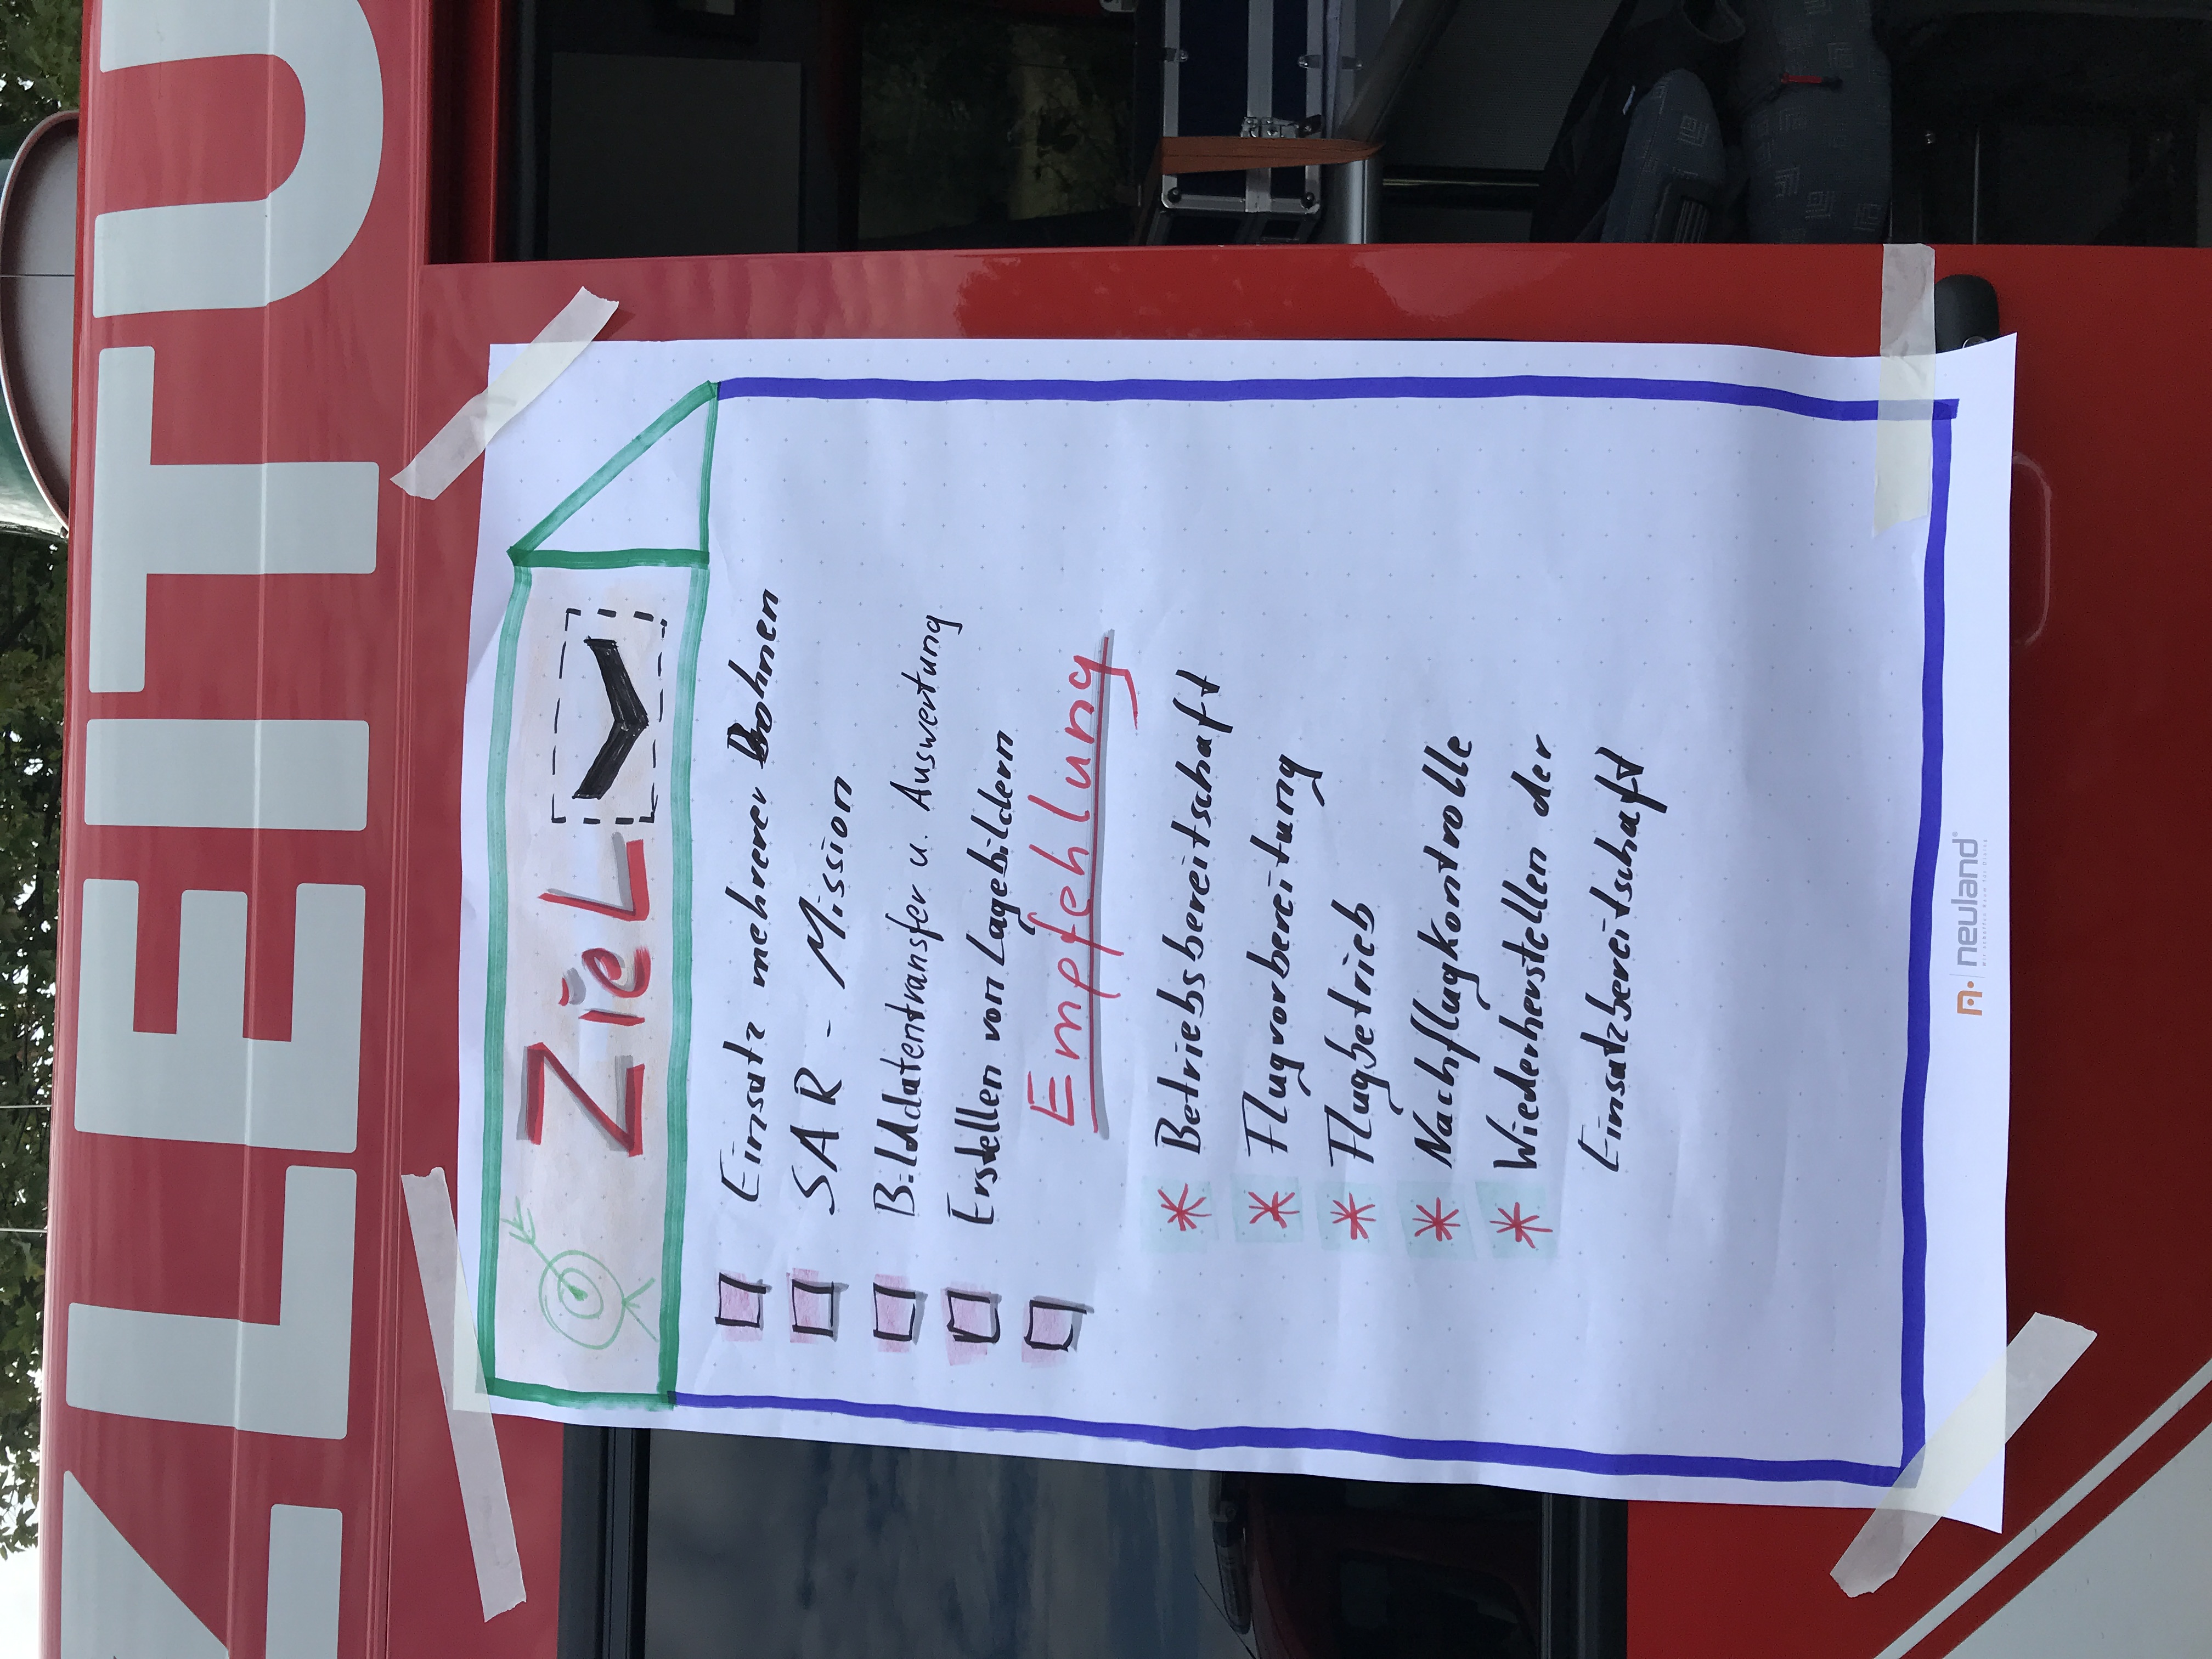 ZLEITU
ZieL
Einsatz mehrerer Drohnen
SAR - Mission
Bilddatentransfer u. Auswertung
Erstellen von Lagebildern
Empfehlung
* Betriebsbereitschaft
* Flugvorbereitung
* Flugbetrieb
* Nachflugkontrolle
* Wiederherstellen der
Einsatzbereitschaft
neuland